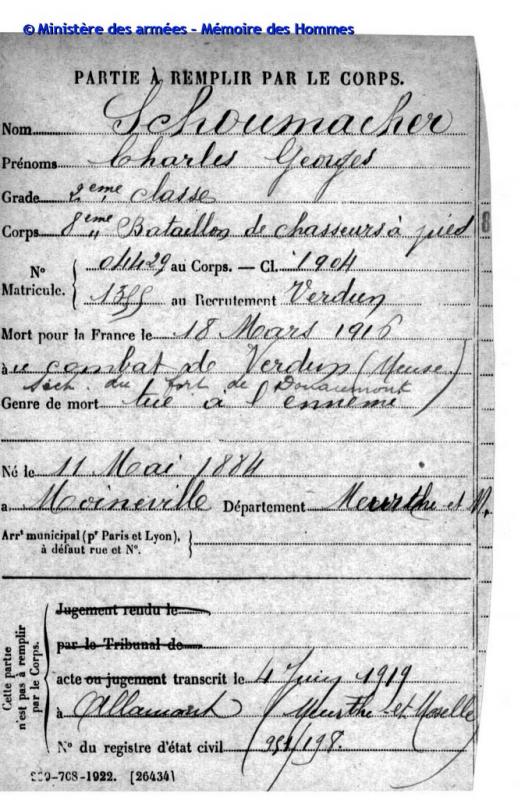 © Ministère des armées - Mémoire des Hommes
PARTIE À REMPLIR PAR LE CORPS.
Nom Schoumacher
Prénoms Charles Georges
Grade 2ème classe
Corps 8ème " Bataillon de chasseurs à pied
N° Matricule. { 04429 au Corps. — Cl. 1904
1355 au Recrutement Verdun
Mort pour la France le 18 Mars 1916
à u combat de Verdun (Meuse)
sect. du fort de Douaumont
Genre de mort tué à l'ennemi
Né le 11 Mai 1884
à Moineville Département Meurthe et M.
Arrt municipal (pr Paris et Lyon),
à défaut rue et N°.
Cette partie n'est pas à remplir par le Corps.
Jugement rendu le
par le Tribunal de
acte ou jugement transcrit le 4 Juin 1919
à Allamont (Meurthe-et-Moselle
N° du registre d'état civil 198.
-708-1922. [26434]
8